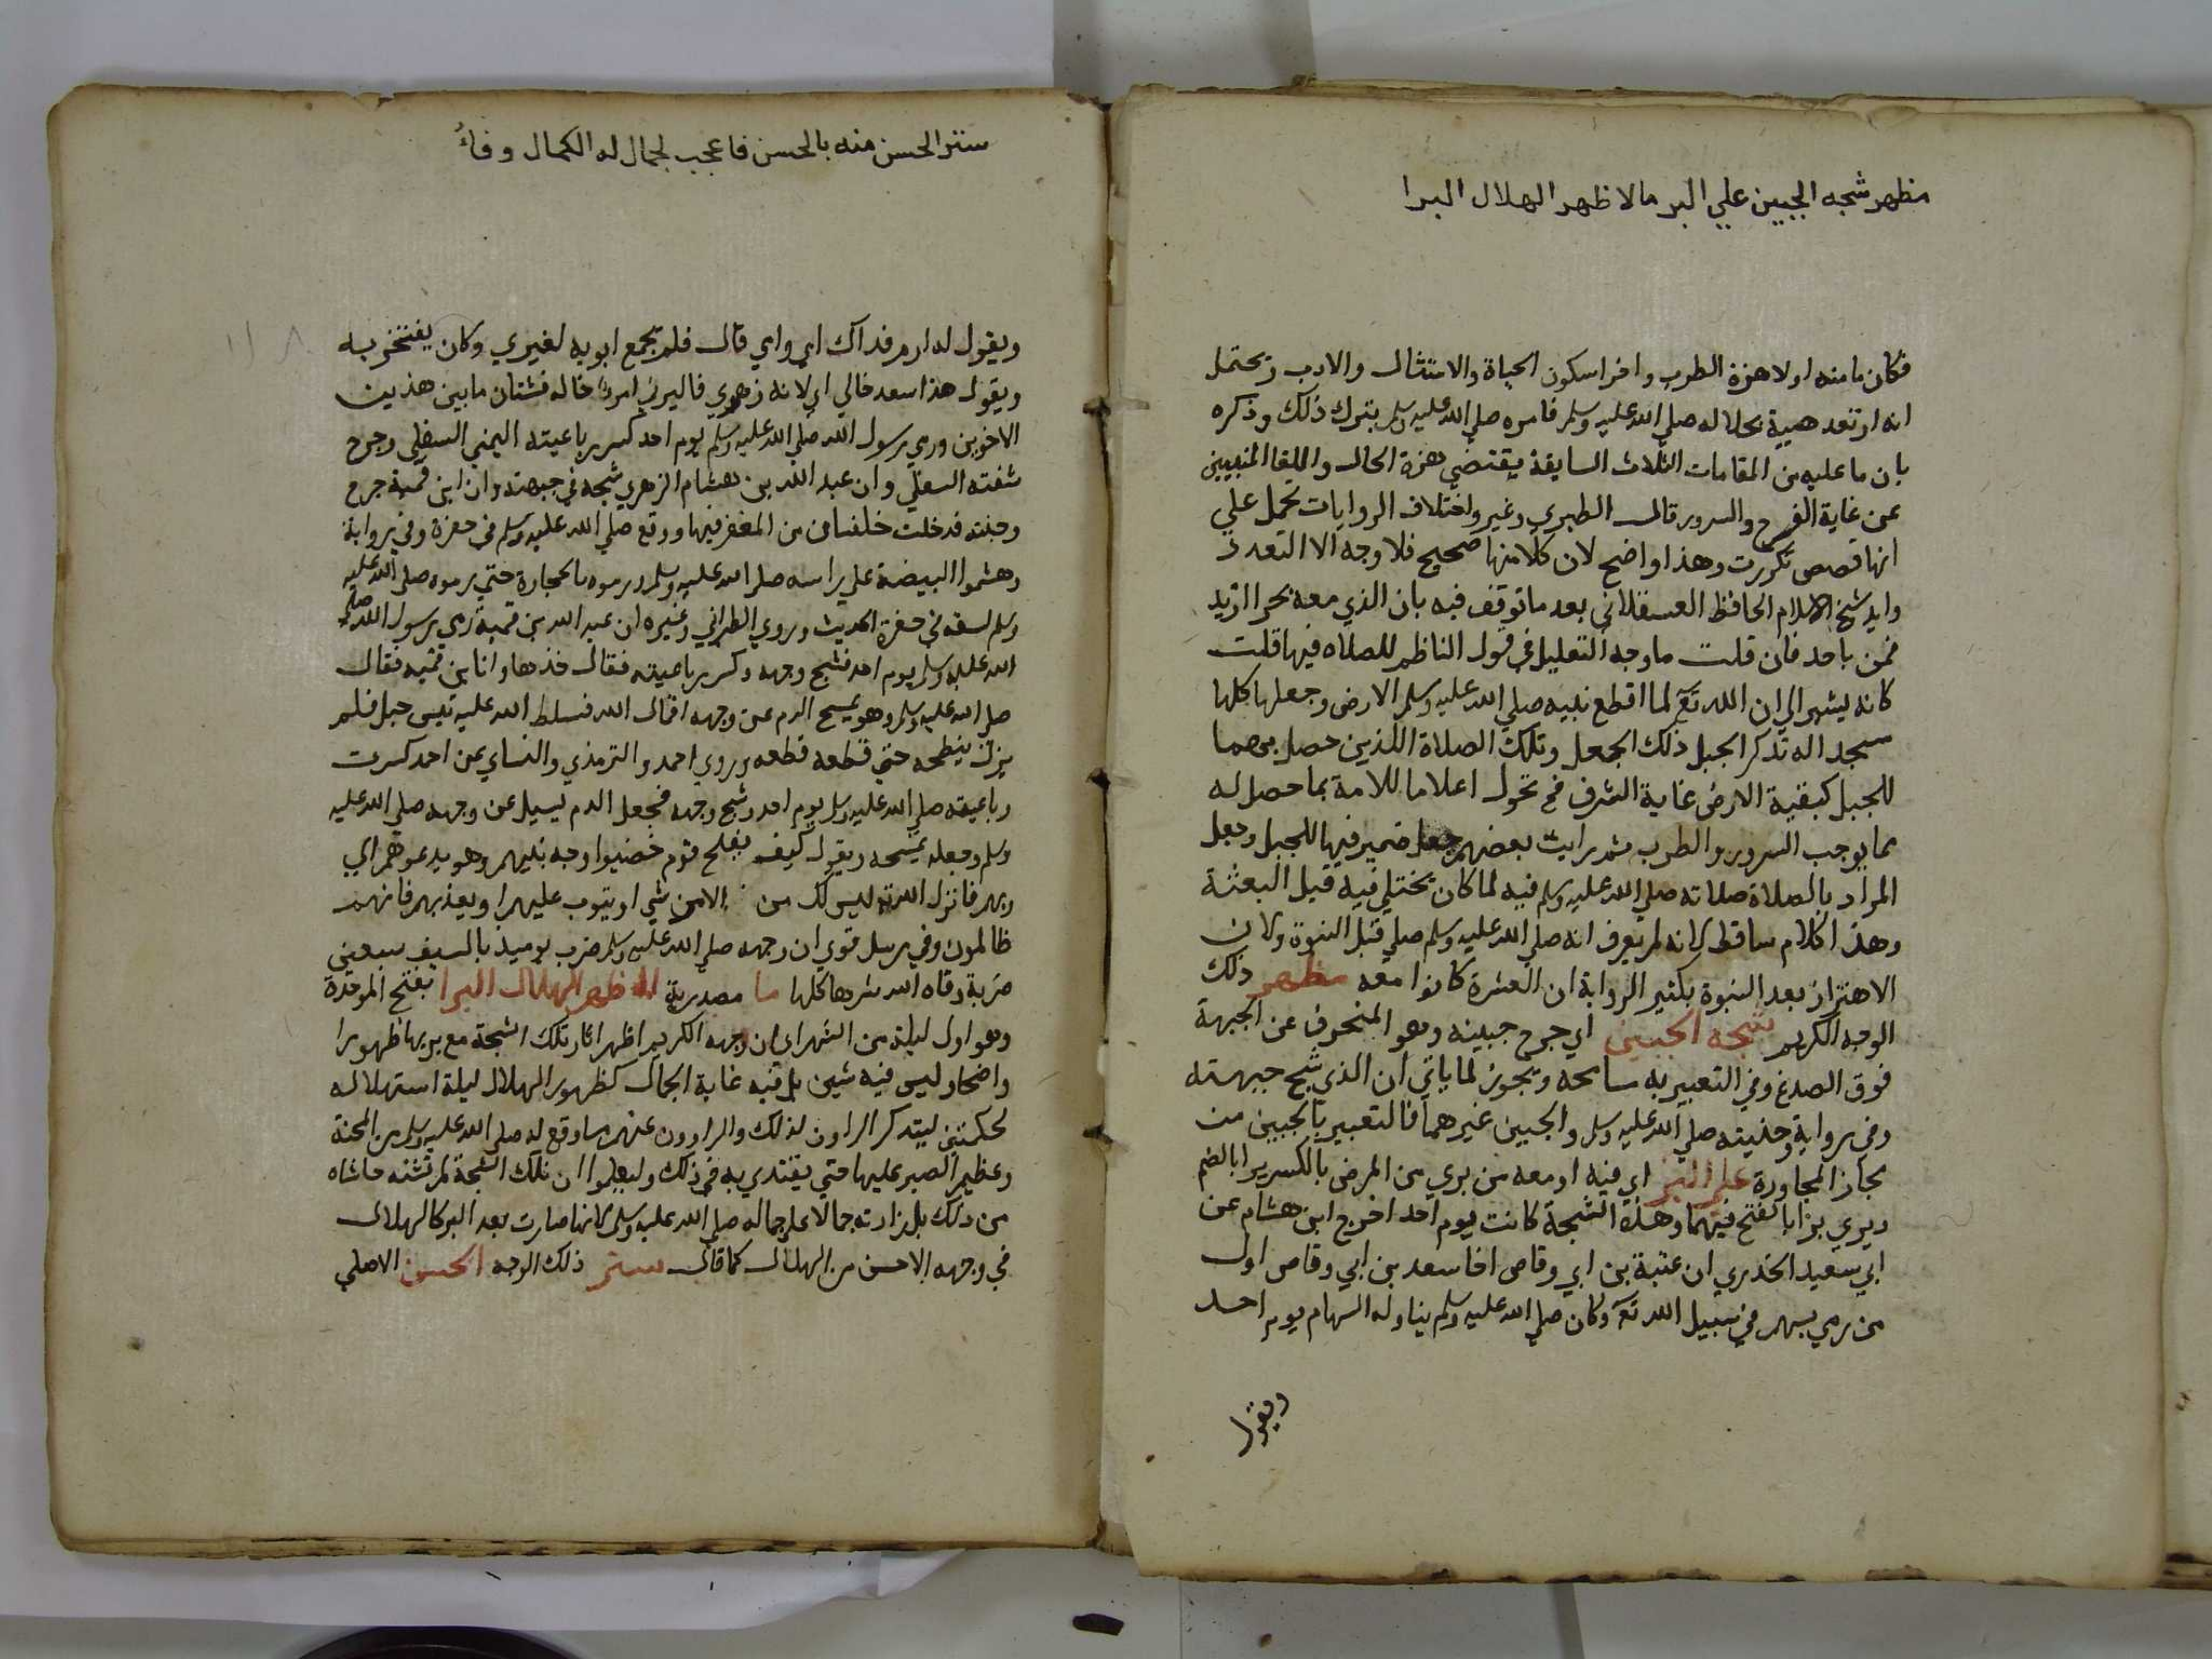 مظهر شجه الجبين علي البر مالا ظهر الهلال البرا
فكان ما منه اولا هزة الطرب واخرا سكون الحياة والامتثال والادب ويحتمل
انه ارتعد هيبة بحلاله صلي الله عليه وسلم فامره صلي الله عليه وسلم بترك ذلك وذكره
بان ما عليه من المقامات الثلاث السابقة يقتضي هزة الحال
عن غاية الفرح والسرور قال الطبري وغيره واختلاف الروايات تحمل علي
انها قصص تكررت وهذا واضح لان كلا منها صحيح فلا وجه الا التعدد
وايد شيخ الاسلام الحافظ العسقلاني بعد ما توقف فيه بان الذي معه بحرا ازيد
فمن باحد فان قلت ما وجه التعليل في قول الناظم للصلاه فيها قلت
كانه يشير الي ان الله تع لما اقطع نبيه صلي الله عليه وسلم الارض وجعلها كلها
مسجدا له تذكر الجبل ذلك الجعل وتلك الصلاة اللذين حصل بهما
للجبل كبقية الارض غاية الشرف فح تحول اعلاما للامة بما حصل له
مما يوجب السرور والطرب ثم رايت بعضهم جعل ضمير فيها للجبل وجعل
المراد بالصلاة صلاته صلي الله عليه وسلم فيه لما كان يختلي فيه قبل البعثة
وهذا كلام ساقط لانه لم يعرف انه صلي الله عليه وسلم صلي قبل النبوة ولان
الاهتزاز بعد النبوة بكثير الرواية ان العشرة كانوا معه مظهر ذلك
الوجه الكريم شجه الجبين اي جرح جبينه وهو المنحرف عن الجبهة
فوق الصدغ وفي التعبير به سامحه وتجوز لما ياتي ان الذي شج جبهته
وفي رواية وجنيته صلي الله عليه وسلم والجبين غيرهما فالتعبير بالجبين من
مجاز المجاورة علي البر اي فيه او معه من بري من المرض بالكسر برا بالضم
ويري برا بالفتح فيهما وهذه الشجة كانت يوم احد اخرج ابن هشام عن
ابي سعيد الخدري ان عتبة بن ابي وقاص اخا سعد بن ابي وقاص اول
من رمي بسهم في سبيل الله تع وكان صلي الله عليه وسلم يناوله السهام يوم احد
ويقول
ستر الحسن منه بالحسن فاعجب لجمال له الكمال وفاءُ
ويقول له ارم فداك ابي وامي قال فلم يجمع ابويه لغيري وكان يفتخر به
ويقول هذا سعد خالي اي لانه زهري فاليرني امرؤ خاله فشتان ما بين هذين
الاخوين ورمي رسول الله صلي الله عليه وسلم يوم احد كسر رباعيته اليمني السفلي وجرح
شفته السفلي وان عبد الله بن هشام الزهري شجه في جبهته وان ابن قمية جرح
وجنته فدخلت حلقتان من المغفر فيها ووقع صلي الله عليه وسلم في حفرة وفي رواية
وهشموا البيضة علي راسه صلي الله عليه وسلم ورموه بالحجارة حتي رموه صلي الله عليه
وسلم لسقه في حفرة الحديث وروي الطبراني وغيره ان عبد الله بن قمية رمي رسول الله صلي
الله عليه وسلم يوم احد فشج وجهه وكسر رباعيته فقال خذها وانا بن قميه فقال
صلي الله عليه وسلم وهو يمسح الدم عن وجهه اقمال الله فسلط الله عليه تيس جبل فلم
يزل ينطحه حتي قطعه قطعه وروي احمد والترمذي والنساي عن احد كسرت
رباعيته صلي الله عليه وسلم يوم احد وشج وجهه فجعل الدم يسيل عن وجهه صلي الله عليه
وسلم وجعله يمسحه ويقول كيف يفلح قوم خضبوا وجه نبيهم وهو يدعوهم الي
ربهم فانزل الله تع ليس لك من الامر شي او يتوب عليهم او يعذبهم فانهم
ظالمون وفي مرسل قوي ان وجهه صلي الله عليه وسلم ضرب يوميذ بالسيف سبعين
ضربة وقاه الله شرها كلها ما مصدرية اظهر الهلال البرا بفتح الموحدة
وهو اول ليلة من الشهر اي ان وجهه الكريم اظهر اثار تلك الشجة مع بريها ظهورا
واضحا وليس فيه شين بل فيه غاية الجمال كظهور الهلال ليلة استهلاله
لحكمتين ليتذكر الراون لذلك والراوون عنهم ما وقع له صلي الله عليه وسلم من المحنة
وعظيم الصبر عليها حتي يقتدي به في ذلك وليعلموا ان تلك الشجة لم تشنه حاشاه
من ذلك بل زادته جمالا علي جماله صلي الله عليه وسلم لانها صارت بعد البر كالهلال
في وجهه الاحسن من الهلال كما قال ستر ذلك الوجه الحسن الاصلي